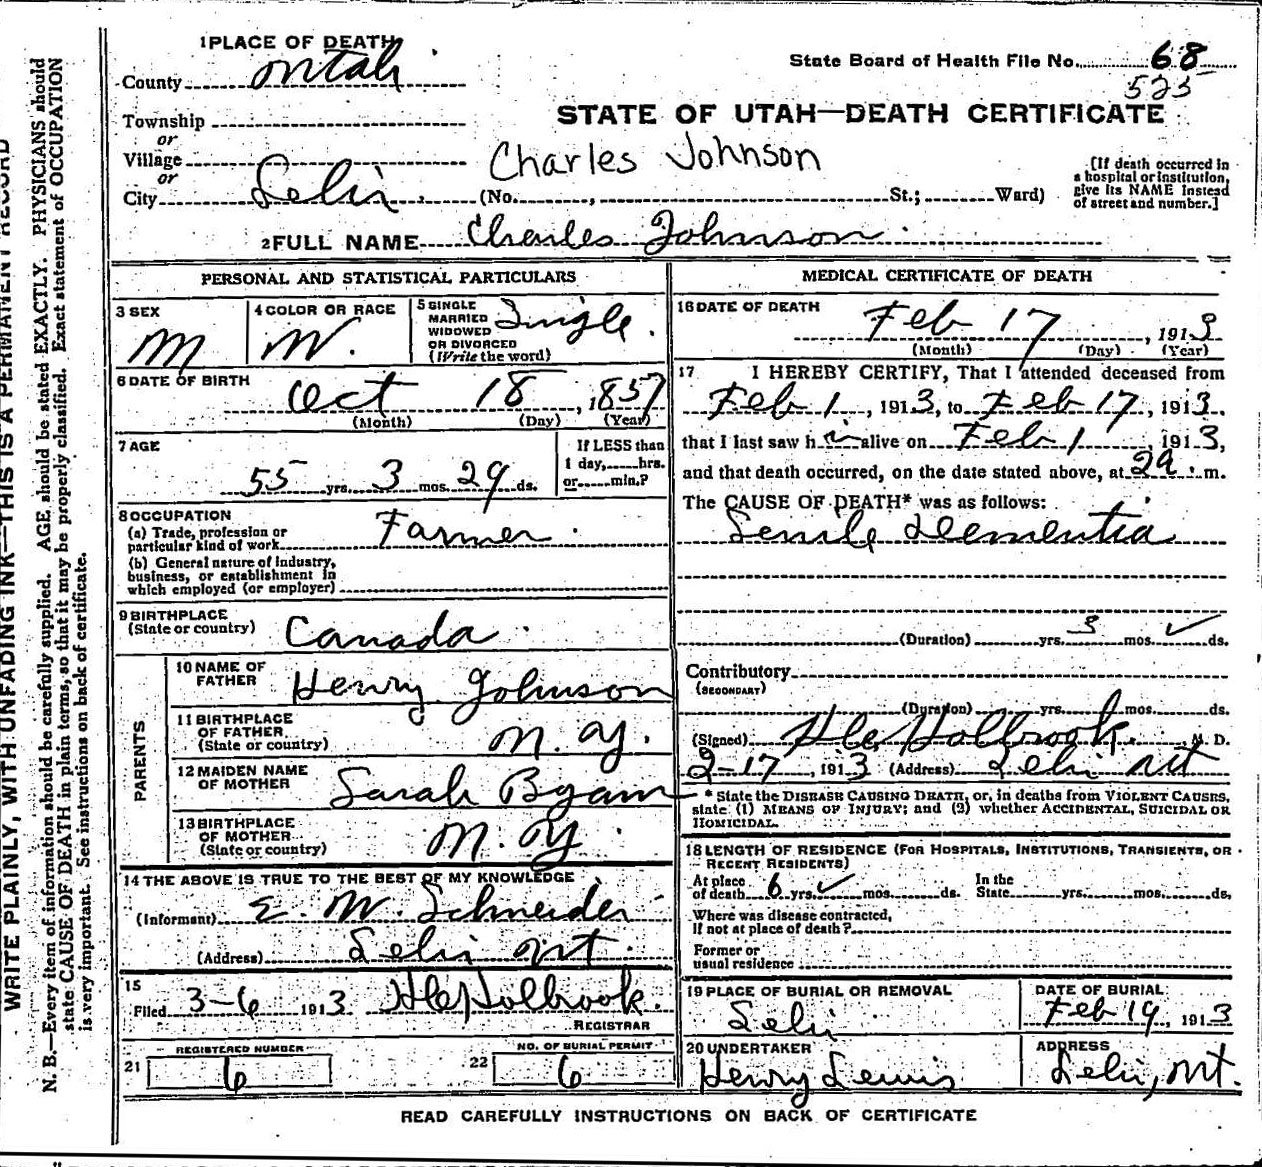 WRITE PLAINLY, WITH UNFADING INK—THIS IS A PERMANENT RECORD
N. B.—Every item of information should be carefully supplied. AGE should be stated EXACTLY. PHYSICIANS should
state CAUSE OF DEATH in plain terms, so that it may be properly classified. Exact statement of OCCUPATION
is very important. See instructions on back of certificate.
1 PLACE OF DEATH
County Utah
State Board of Health File No. 68
525
Township
or
Village
or
City Lehi
STATE OF UTAH—DEATH CERTIFICATE
Charles Johnson
(No. , St.; Ward)
[If death occurred in
a hospital or institution,
give its NAME instead
of street and number.]
2 FULL NAME Charles Johnson
PERSONAL AND STATISTICAL PARTICULARS
3 SEX
M
4 COLOR OR RACE
W.
5 SINGLE
MARRIED
WIDOWED
OR DIVORCED
(Write the word)
Single.
6 DATE OF BIRTH
Oct 18, 1857
(Month) (Day) (Year)
7 AGE
55 yrs. 3 mos. 29 ds.
If LESS than
1 day, hrs.
or min.?
8 OCCUPATION
(a) Trade, profession or
particular kind of work Farmer
(b) General nature of industry,
business, or establishment in
which employed (or employer)
9 BIRTHPLACE
(State or country) Canada
PARENTS
10 NAME OF
FATHER Henry Johnson
11 BIRTHPLACE
OF FATHER
(State or country) N. Y.
12 MAIDEN NAME
OF MOTHER Sarah Byam
13 BIRTHPLACE
OF MOTHER
(State or country) N. Y.
14 THE ABOVE IS TRUE TO THE BEST OF MY KNOWLEDGE
(Informant) E. W. Schneider
(Address) Lehi Ut.
15
Filed 3-6 1913 Holbrook.
REGISTRAR
21 REGISTERED NUMBER
6
22 NO. OF BURIAL PERMIT
6
MEDICAL CERTIFICATE OF DEATH
16 DATE OF DEATH
Feb 17, 1913
(Month) (Day) (Year)
17 I HEREBY CERTIFY, That I attended deceased from
Feb 1, 1913, to Feb 17, 1913.
that I last saw him alive on Feb 1, 1913,
and that death occurred, on the date stated above, at 2a. m.
The CAUSE OF DEATH* was as follows:
Senile Dementia
(Duration) yrs. 3 mos. ds.
Contributory
(SECONDARY)
(Duration) yrs. mos. ds.
(Signed) Holbrook. M. D.
2-17, 1913 (Address) Lehi Ut
* State the DISEASE CAUSING DEATH, or, in deaths from VIOLENT CAUSES,
state (1) MEANS OF INJURY; and (2) whether ACCIDENTAL, SUICIDAL OR
HOMICIDAL.
18 LENGTH OF RESIDENCE (FOR HOSPITALS, INSTITUTIONS, TRANSIENTS, OR
RECENT RESIDENTS)
At place
of death 6 yrs. mos. ds.
In the
State yrs. mos. ds.
Where was disease contracted,
If not at place of death?
Former or
usual residence
19 PLACE OF BURIAL OR REMOVAL
Lehi
DATE OF BURIAL
Feb 19, 1913
20 UNDERTAKER
Henry Lewis
ADDRESS
Lehi, Ut.
READ CAREFULLY INSTRUCTIONS ON BACK OF CERTIFICATE